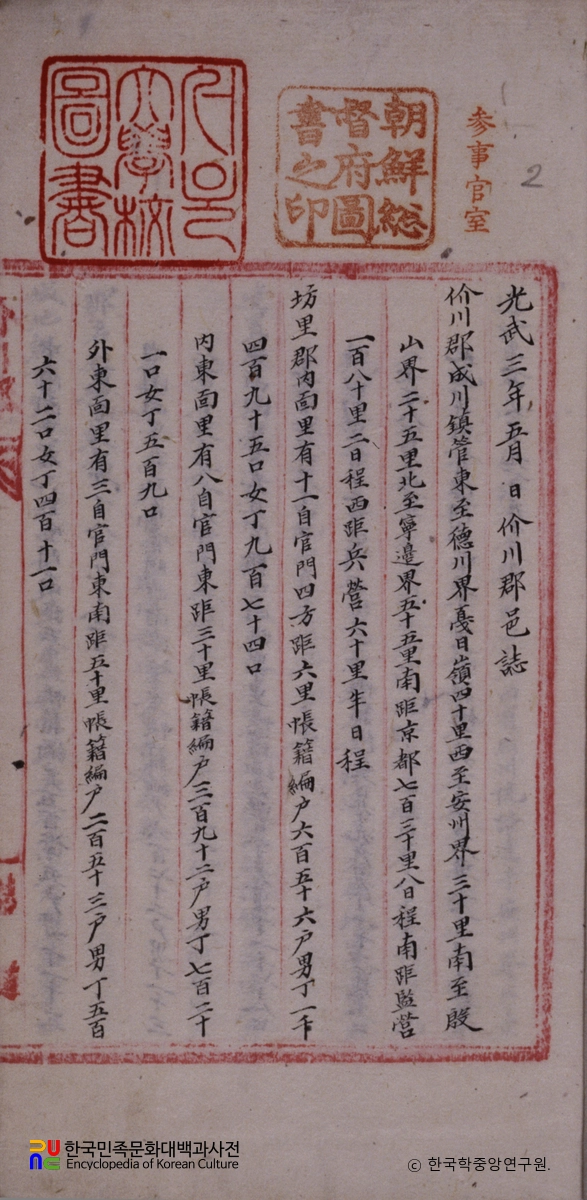 參事官室
2
朝鮮総
督府圖
書之印
서울
大學校
圖書
光武三年五月 日价川郡邑誌
价川郡成川鎮管東至德川界憂日嶺四十里西至安州界三十里南至殷
山界二十五里北至寧邊界五十五里南距京都七百三十里八日程南距監營
一百八十里二日程西距兵營六十里半日程
坊里郡內面里有十一自官門四方距六里帳籍編户六百五十六户男丁一千
四百九十五口女丁九百七十四口
內東面里有八自官門東距三十里帳籍編户三百九十二户男丁七百二十
一口女丁五百九口
外東面里有三自官門東南距五十里帳籍編户二百五十三户男丁五百
六十二口女丁四百十一口
한국민족문화대백과사전
Encyclopedia of Korean Culture
ⓒ 한국학중앙연구원.